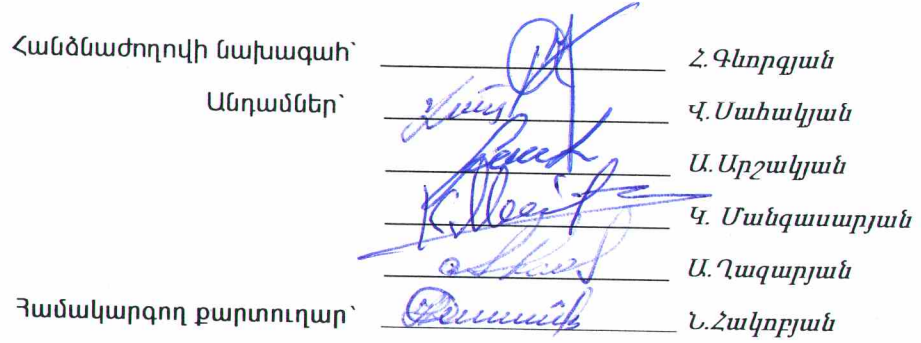 Հանձնաժողովի նախագահ՝ Հ.Գևորգյան
Անդամներ՝ Վ.Սահակյան
Ա.Արշակյան
Կ. Մանգասարյան
Ա.Ղազարյան
Համակարգող քարտուղար՝ Ն.Հակոբյան